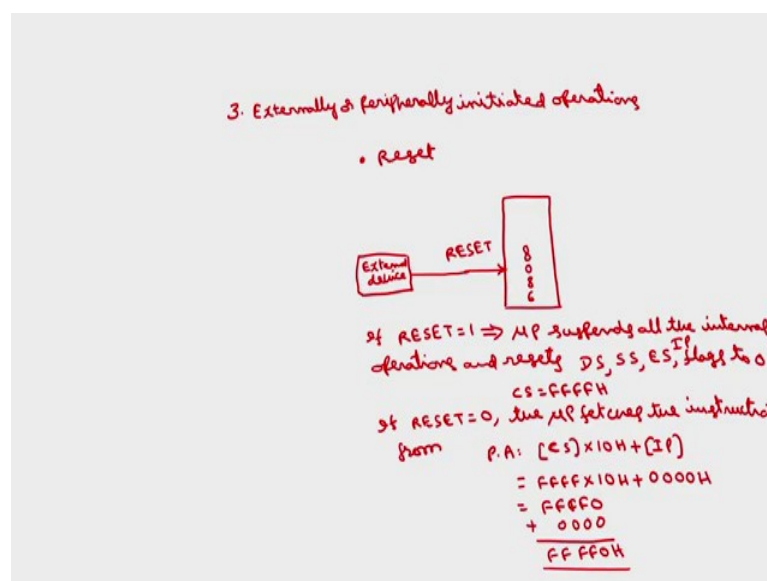 3. Externally or peripherally initiated operations
• Reset
External
device
RESET
8
0
8
6
If RESET=1 ⇒ μP suspends all the internal
operations and resets DS, SS, ES, IP, flags to 0
CS=FFFFH
If RESET=0, the μP fetches the instructio
from P.A: [CS]×10H+[IP]
= FFFF×10H+0000H
= FFFF0
+ 0000
FFFF0H